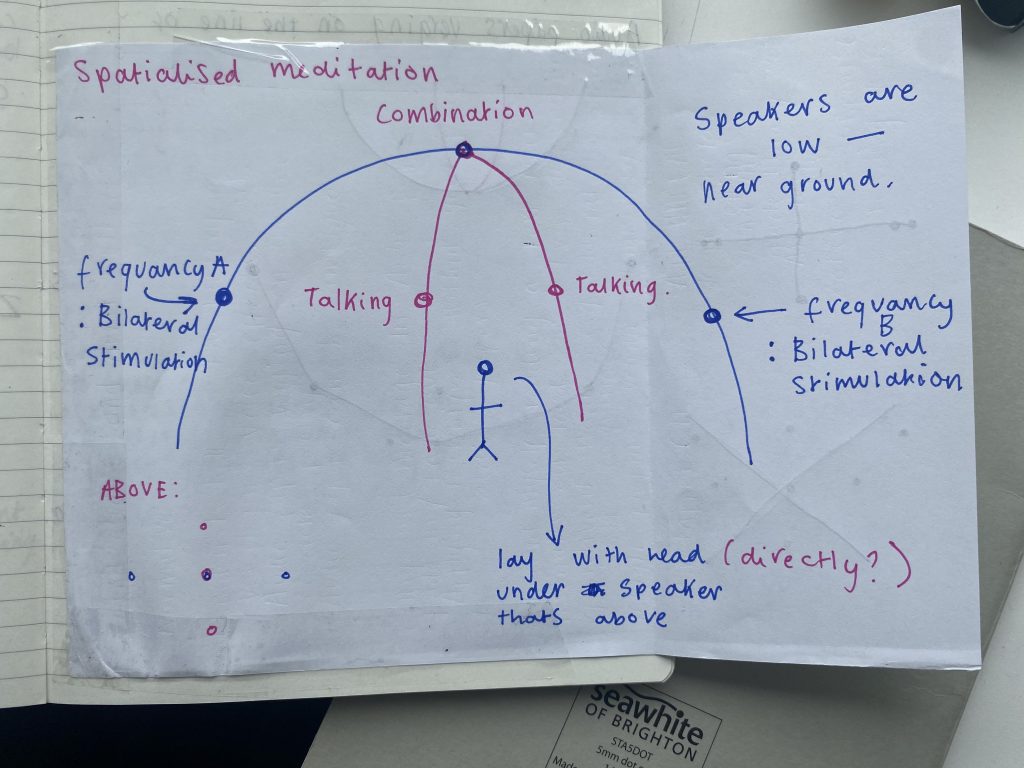 Spatialised meditation
Combination
Speakers are
low —
near ground.
frequancy A
: Bilateral
stimulation
Talking
Talking.
frequancy
B
: Bilateral
stimulation
ABOVE:
lay with head (directly?)
under speaker
thats above
seawhite
OF BRIGHTON
STA5DOT
5mm dot
Made